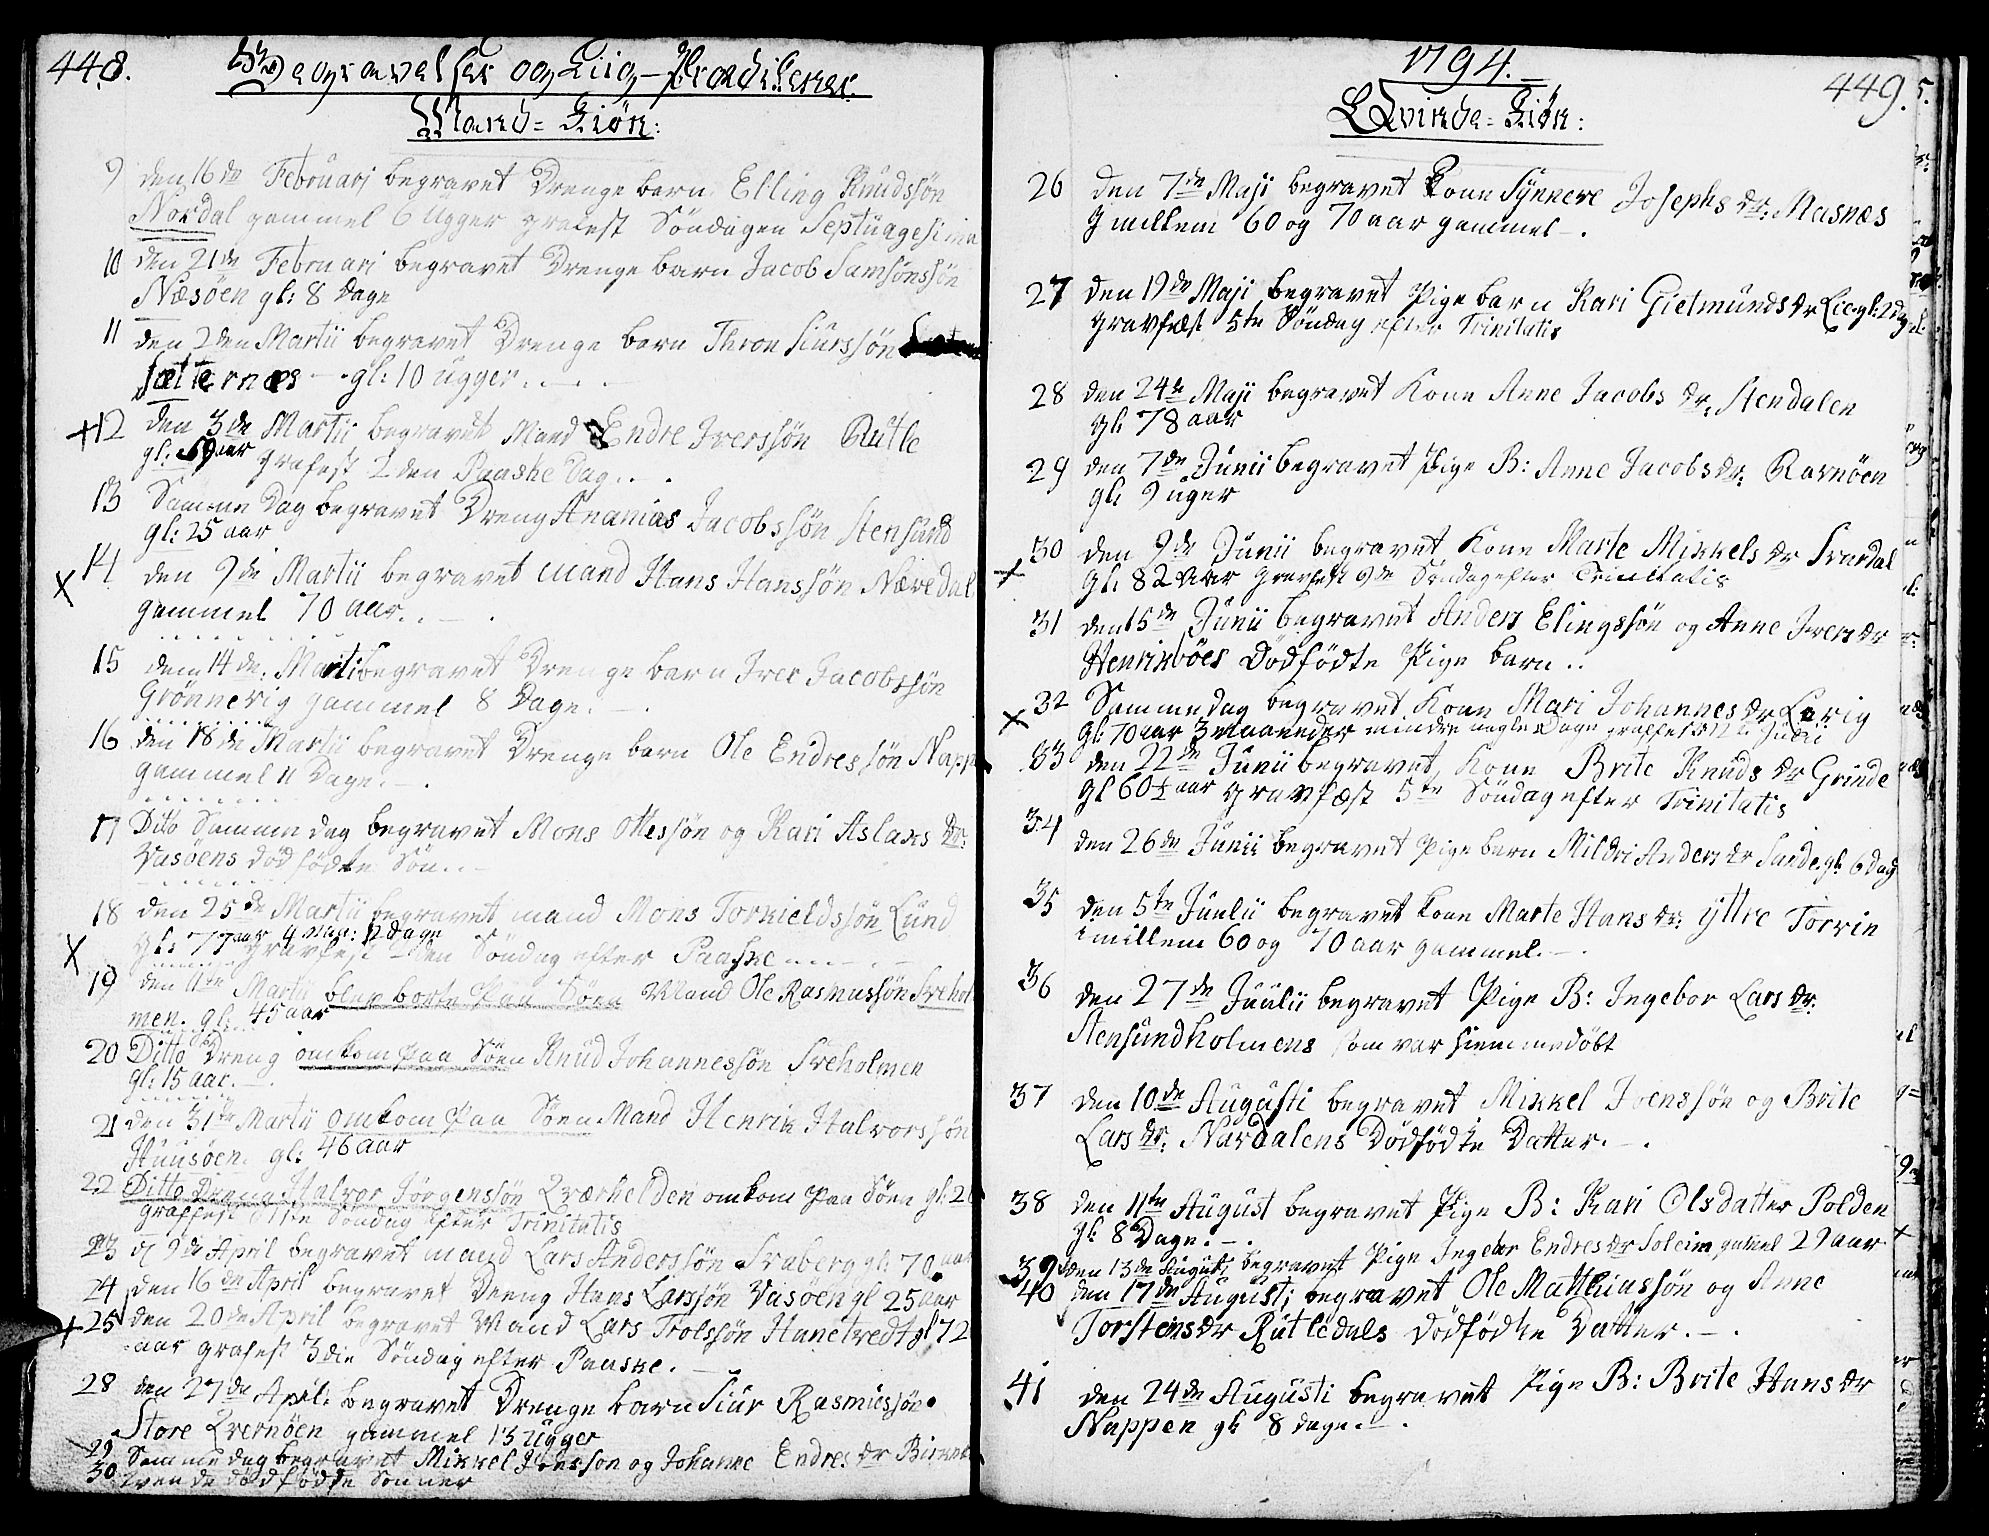 448.
Begravelser og Liig-Prædikener.
Mand-Kiön:
9 den 16de Februarj begravet Drenge barn Elling Knudssön
Nordal gammel 6 Ugger grafest Söndagen Septuagesima
10 den 21de Februari begravet Drenge barn Jacob Samsonssön
Næsöen gl: 8 Dage
11 den 2den Martii begravet Drenge barn Thron Siurssön
Sætternæs - gl: 10 ugger.
+12 den 3de Martii begravet Mand Endre Iverssön Rutle
gl: 59 aar grafest 2den Paaske Dag.
13 Samme Dag begravet Dreng Ananias Jacobssön Stensund
gl: 25 aar
x 14 den 9de Martii begravet Mand Hans Hanssön Næredal
gammel 70 aar.
15 den 14de: Marti begravet Drenge barn Iver Jacobssön
Grönnevig gammel 8 Dage.
16 den 18de Martii begravet Drenge barn Ole Endressön Napp
gammel 11 Dage.
17 Dito Samme dag begravet Mons Ottessön og Kari Aslaks Dr:
Vasöens dödfödte Sön.
18 den 25de Martii begravet mand Mons Torkieldssön Lund
x gl: 77 aar 9 Maa: 12 dage gravfest den Söndag efter Paaske
19 den 11te Martii blev borte paa Söen Mand Ole Rasmussön Svehol
men. gl: 45 aar
20 Ditto Dreng omkom paa Söen Knud Johannessön Sveholmen
gl: 15 aar.
21 den 31te Martii omkom paa Söen Mand Henrik Halvorssön
Huusöen. gl: 46 aar
22 Ditto Dreng Halvor Jörgenssön Qværhelden omkom paa Söen gl: 2
graffest Söndag efter Trinitatis
23 d 9de April begravet mand Lars Anderssön Svaberg gl: 70 aar
24 den 16de April begravet Dreng Hans Larssön Vasöen gl 25 aar
+ 25 den 20de April begravet Mand Lars Trolssön Hanetvedt gl 72
aar grafest 3die Söndag efter Paaske.
28 den 27de April: begravet Drenge barn Siur Rasmussön
Store Qvernöen gammel 13 Ugger
29 Samme dag begravet Mikkel Jonssön og Johanne Endres dr
30 tvende dödfödte Sönner
1794.
449.
Qvinde-Kiön:
26 den 7de Maji begravet Kone Synneve Josephs dr: Masnæs
imillem 60 og 70 aar gammel.
27 den 19de Maji begravet Pige barn Kari Gietmunds dr Lie gl: 2 dag
gravfæst 5te Söndag efter Trinitatis
28 den 24de Maji begravet Kone Anne Jacobs dr. Stendalen
gl: 78 aar
29 den 7de Junii begravet Pige B: Anne Jacobs dr: Ravnöen
gl: 9 uger
+ 30 den 9de Junii begravet Kone Marte Mikkels dr Svardal
gl: 82 aar gravfest 9de Söndag efter Trinitatis
31 den 15de Junii begravet Anders Elingssön og Anne Ivers dr
Henriksböes Dödfödte Pige barn..
x 32 Samme dag begravet Kone Mari Johannes dr Lervig
gl: 70 aar 3 maaneder mindre nogle Dage
33 den 22de Junii begravet Kone Brite Knuds dr Grinde
gl 60½ aar gravfæst 5te Söndag efter Trinitatis
34 den 26de Junii begravet Pige barn Mildri Anders dr Sande gl: 6 dag
35 den 5te Juulii begravet Kone Marte Hans dr: yttre Torvin
imillem 60 og 70 aar gammel.
36 den 27de Juulii begravet Pige B: Ingebor Lars dr:
Stensundholmens som var hiemmedöbt
37 den 10de Augusti begravet Mikkel Joenssön og Brite
Lars dr: Nardalens Dödfödte Datter.
38 den 11te August begravet Pige B: Kari Olsdatter Polden
gl: 8 Dage.
39 den 13de Augusti begravet Pige Ingebor Endres dr Soleim gammel 29 aar
40 den 17de Augusti begravet Ole Mathiassön og Anne
Torstens dr Rutledals Dödfödte Datter.
41 den 24de Augusti begravet Pige B: Brite Hans dr
Nappen gl: 8 dage.